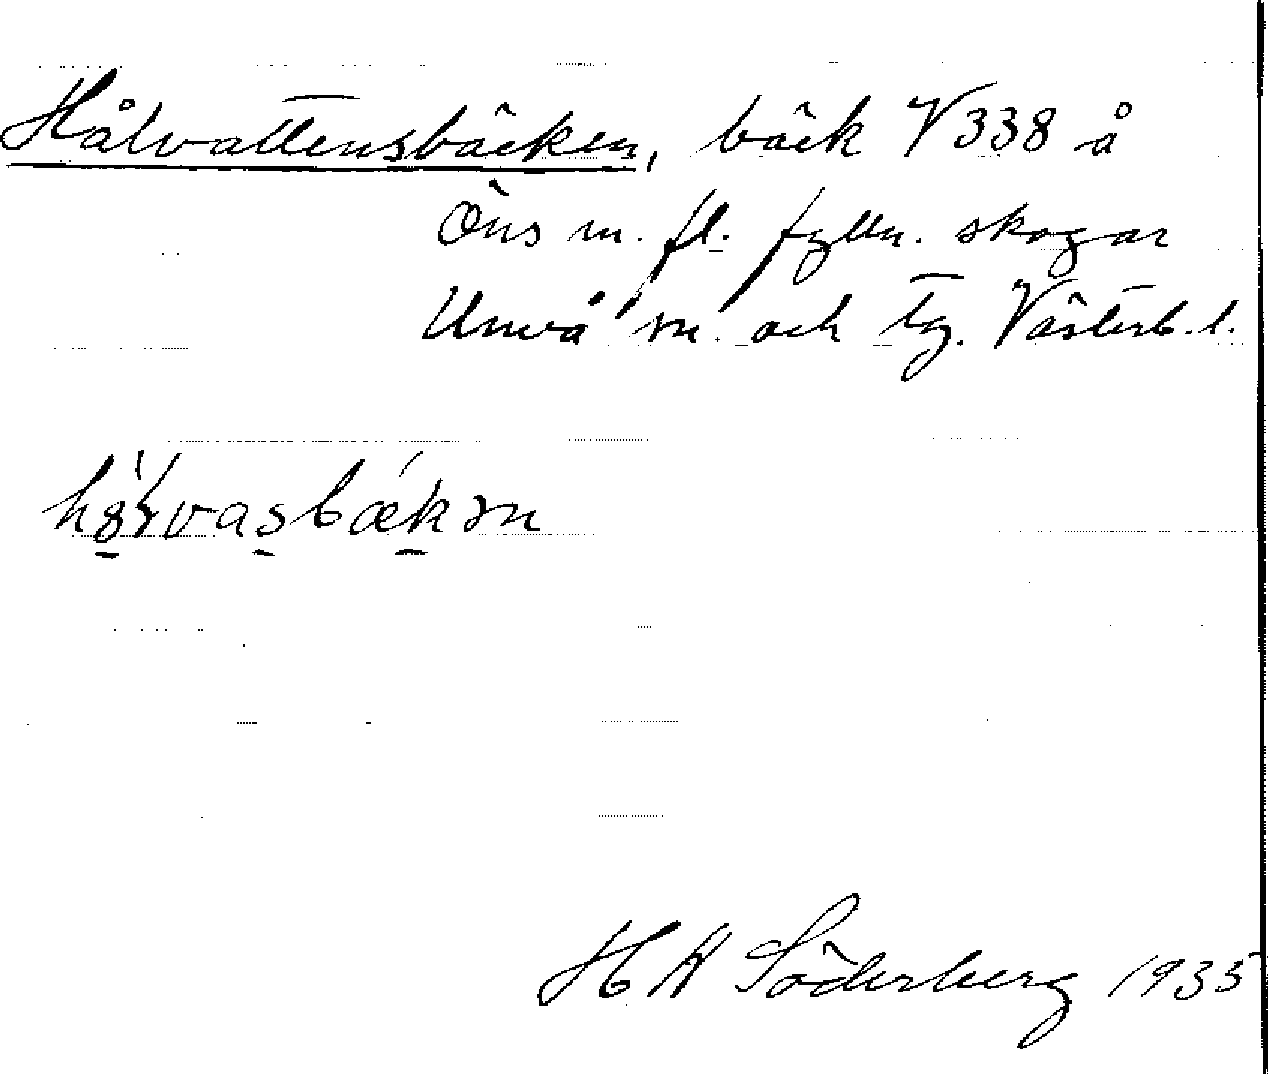 Hålvattensbäcken, bäck V 338 å
Öns m. fl. fylln. skogar
Umeå sn. och tg. Västerb. l.
H A Söderberg 1935